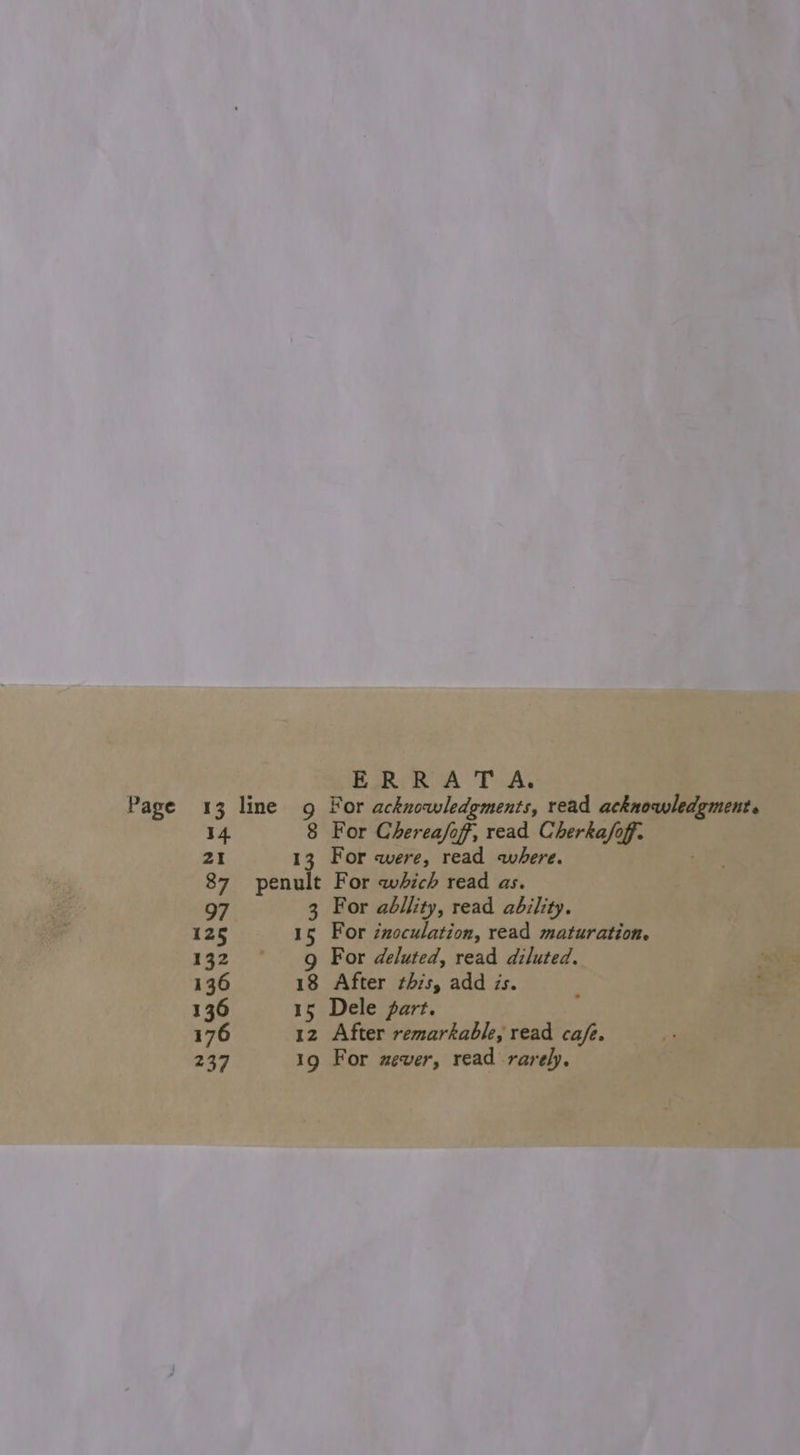 ERRATA.
Page 13 line 9 For acknowledgments, read acknowledgment.
14 8 For Chereaſoff, read Cherkaſoff.
21 13 For were, read where.
87 penult For which read as.
97 3 For abllity, read ability.
125 15 For inoculation, read maturation.
132 9 For deluted, read diluted.
136 18 After this, add is.
136 15 Dele part.
176 12 After remarkable, read caſe.
237 19 For never, read rarely.